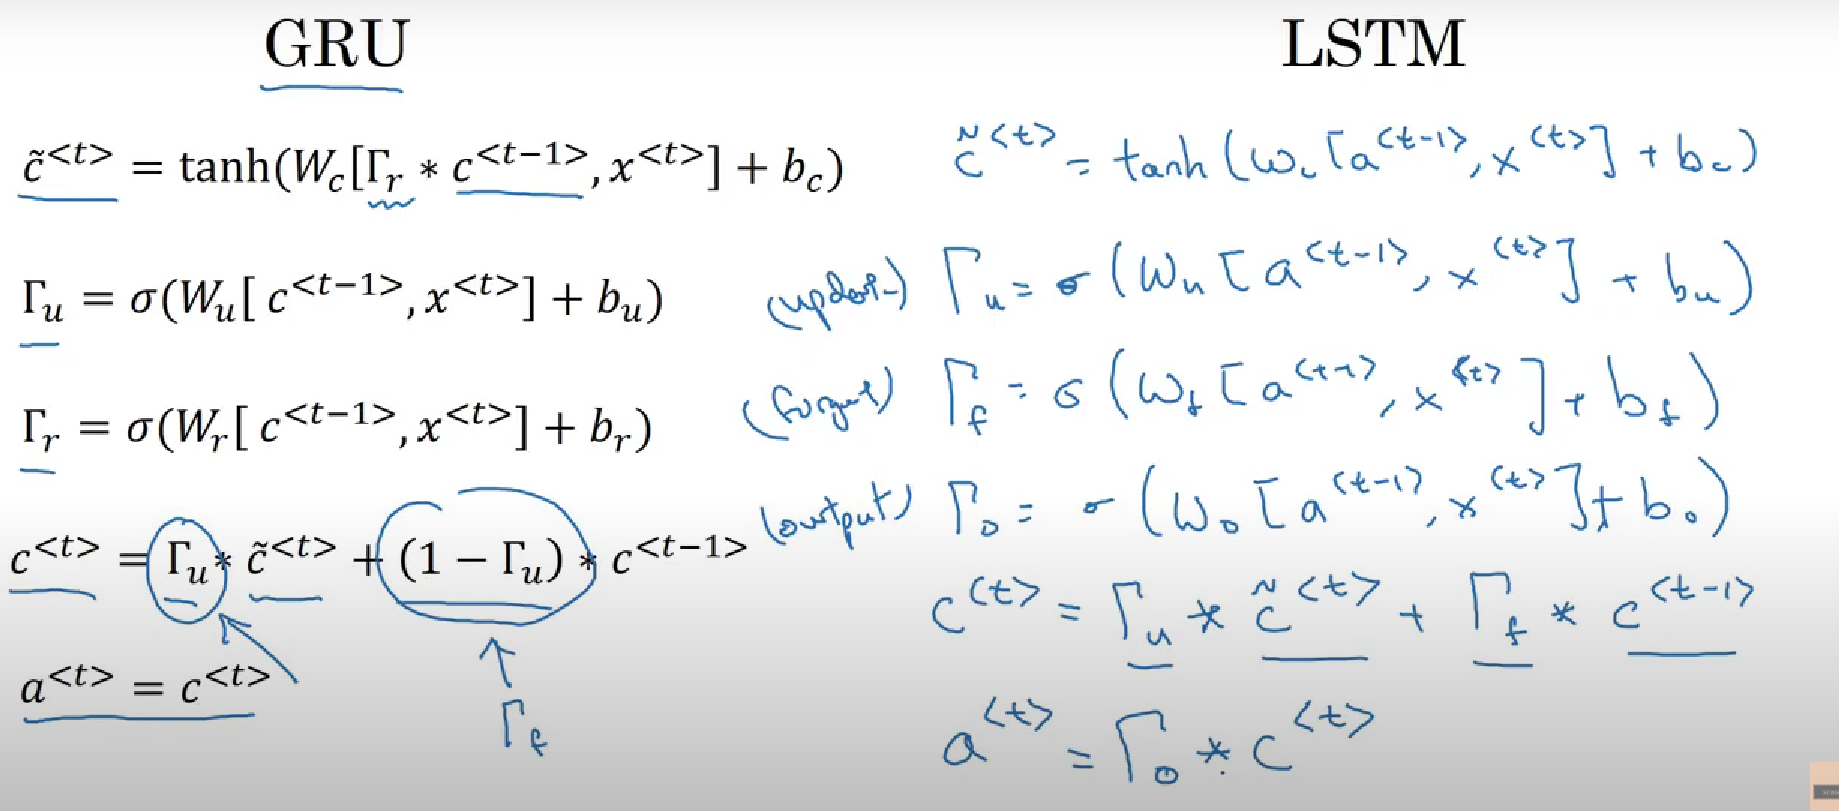 GRU
c̃<t> = tanh(Wc[Γr * c<t−1>, x<t>] + bc)
Γu = σ(Wu[ c<t−1>, x<t>] + bu)
Γr = σ(Wr[ c<t−1>, x<t>] + br)
c<t> = Γu * c̃<t> + (1 − Γu) * c<t−1>
a<t> = c<t>
Γf
LSTM
c̃<t> = tanh(Wc[a<t-1>, x<t>] + bc)
Γu = σ(Wu[a<t-1>, x<t>] + bu)
(forget) Γf = σ(Wf[a<t-1>, x<t>] + bf)
(output) Γo = σ(Wo[a<t-1>, x<t>] + bo)
c<t> = Γu * c̃<t> + Γf * c<t-1>
a<t> = Γo * c<t>